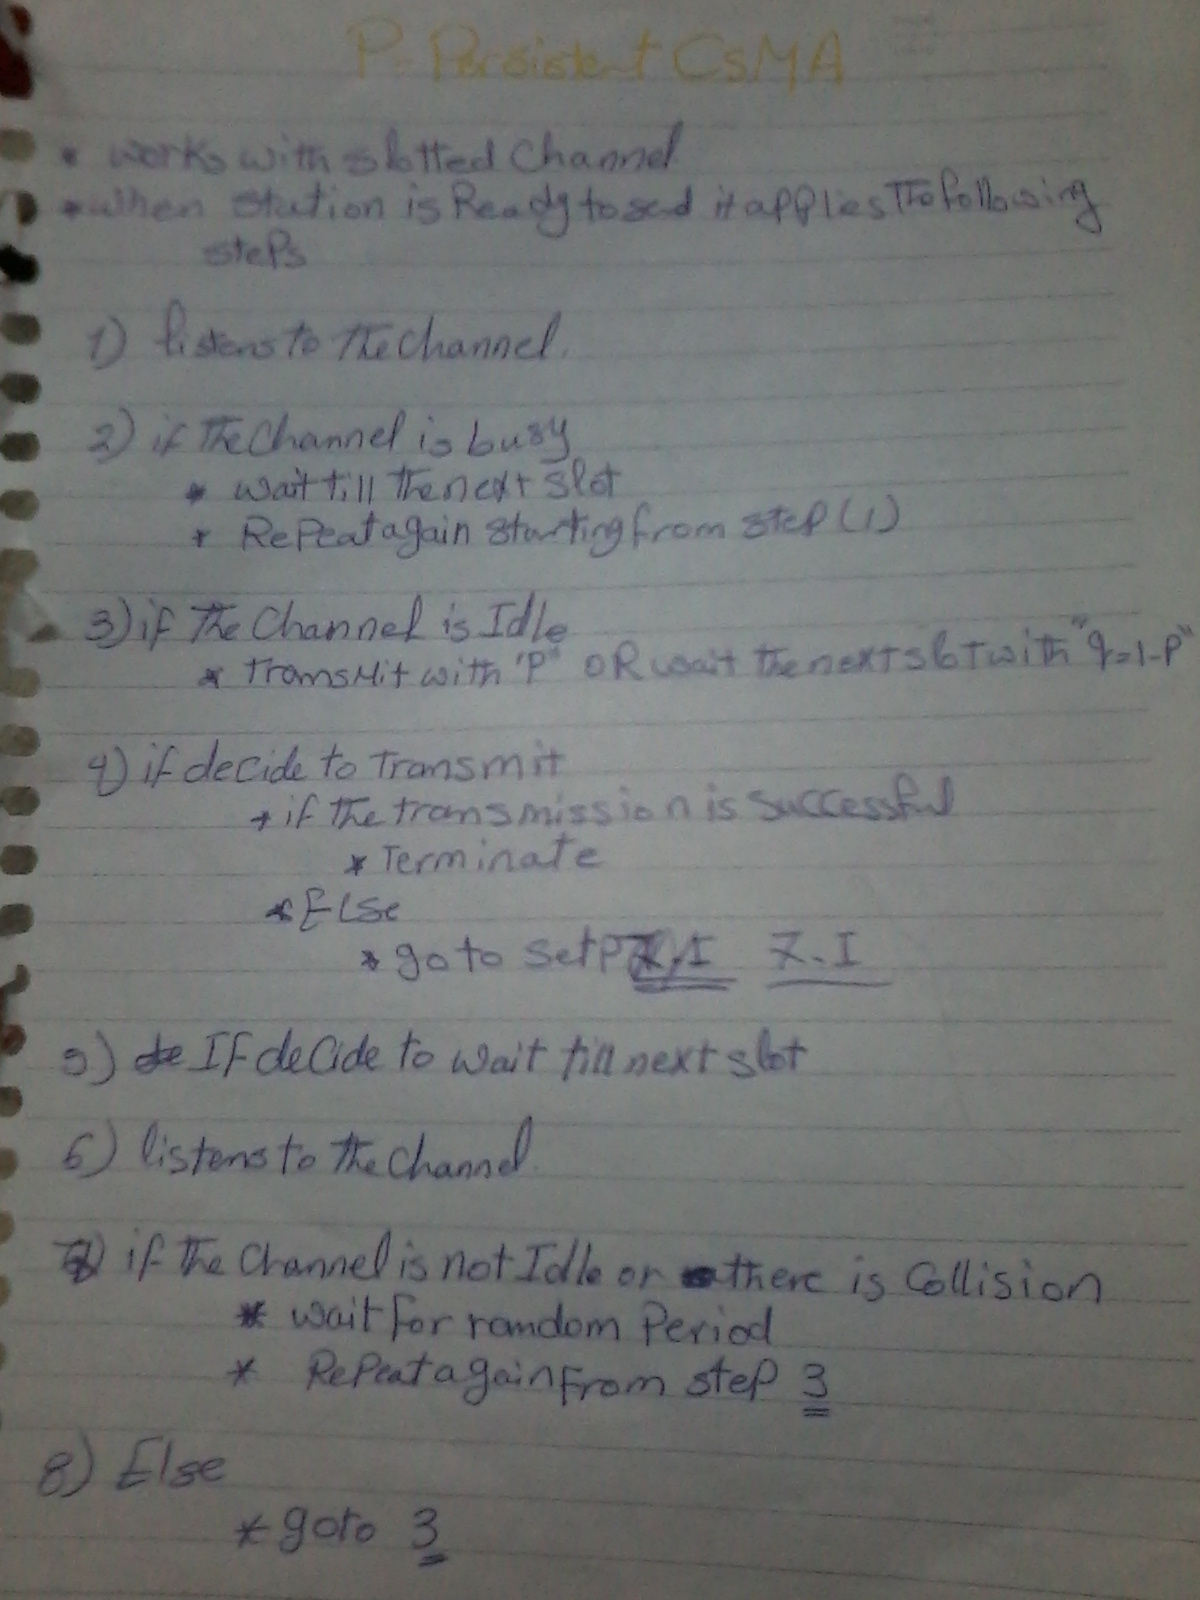 P-Persistent CSMA
* works with slotted Channel
* when station is Ready to send it applies The following
steps
1) listens to The channel.
2) if The Channel is busy
* wait till The next slot
* Repeat again starting from step (1)
3) if The Channel is Idle
* Transmit with "P" OR wait the next slot with "q=1-P"
4) if decide to Transmit
* if the transmission is successful
* Terminate
* ELse
* go to setp 7.I 7.I
5) de If decide to wait till next slot
6) listens to the channel.
7) if The Channel is not Idle or there is Collision
* wait for random Period
* Repeat again from step 3
8) Else
* goto 3